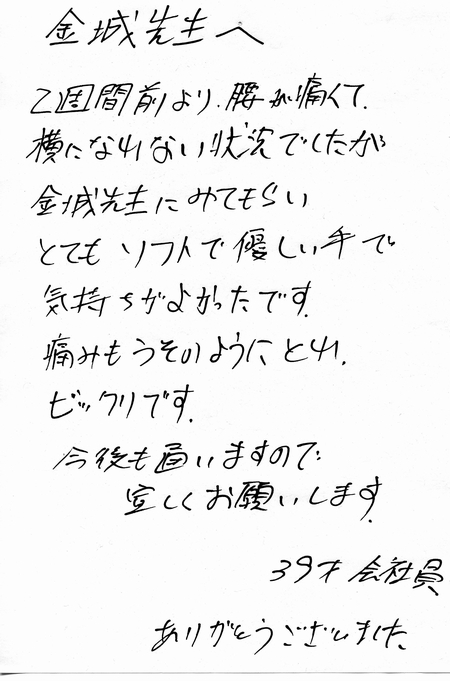 金城先生へ
2週間前より、腰が痛くて、
横になれない状況でしたが
金城先生にみてもらい
とてもソフトで優しい手で
気持ちがよかったです。
痛みもうそのようにとれ、
ビックリです。
今後も いますので
宜しくお願いします。
39才 会社員
ありがとうございました。